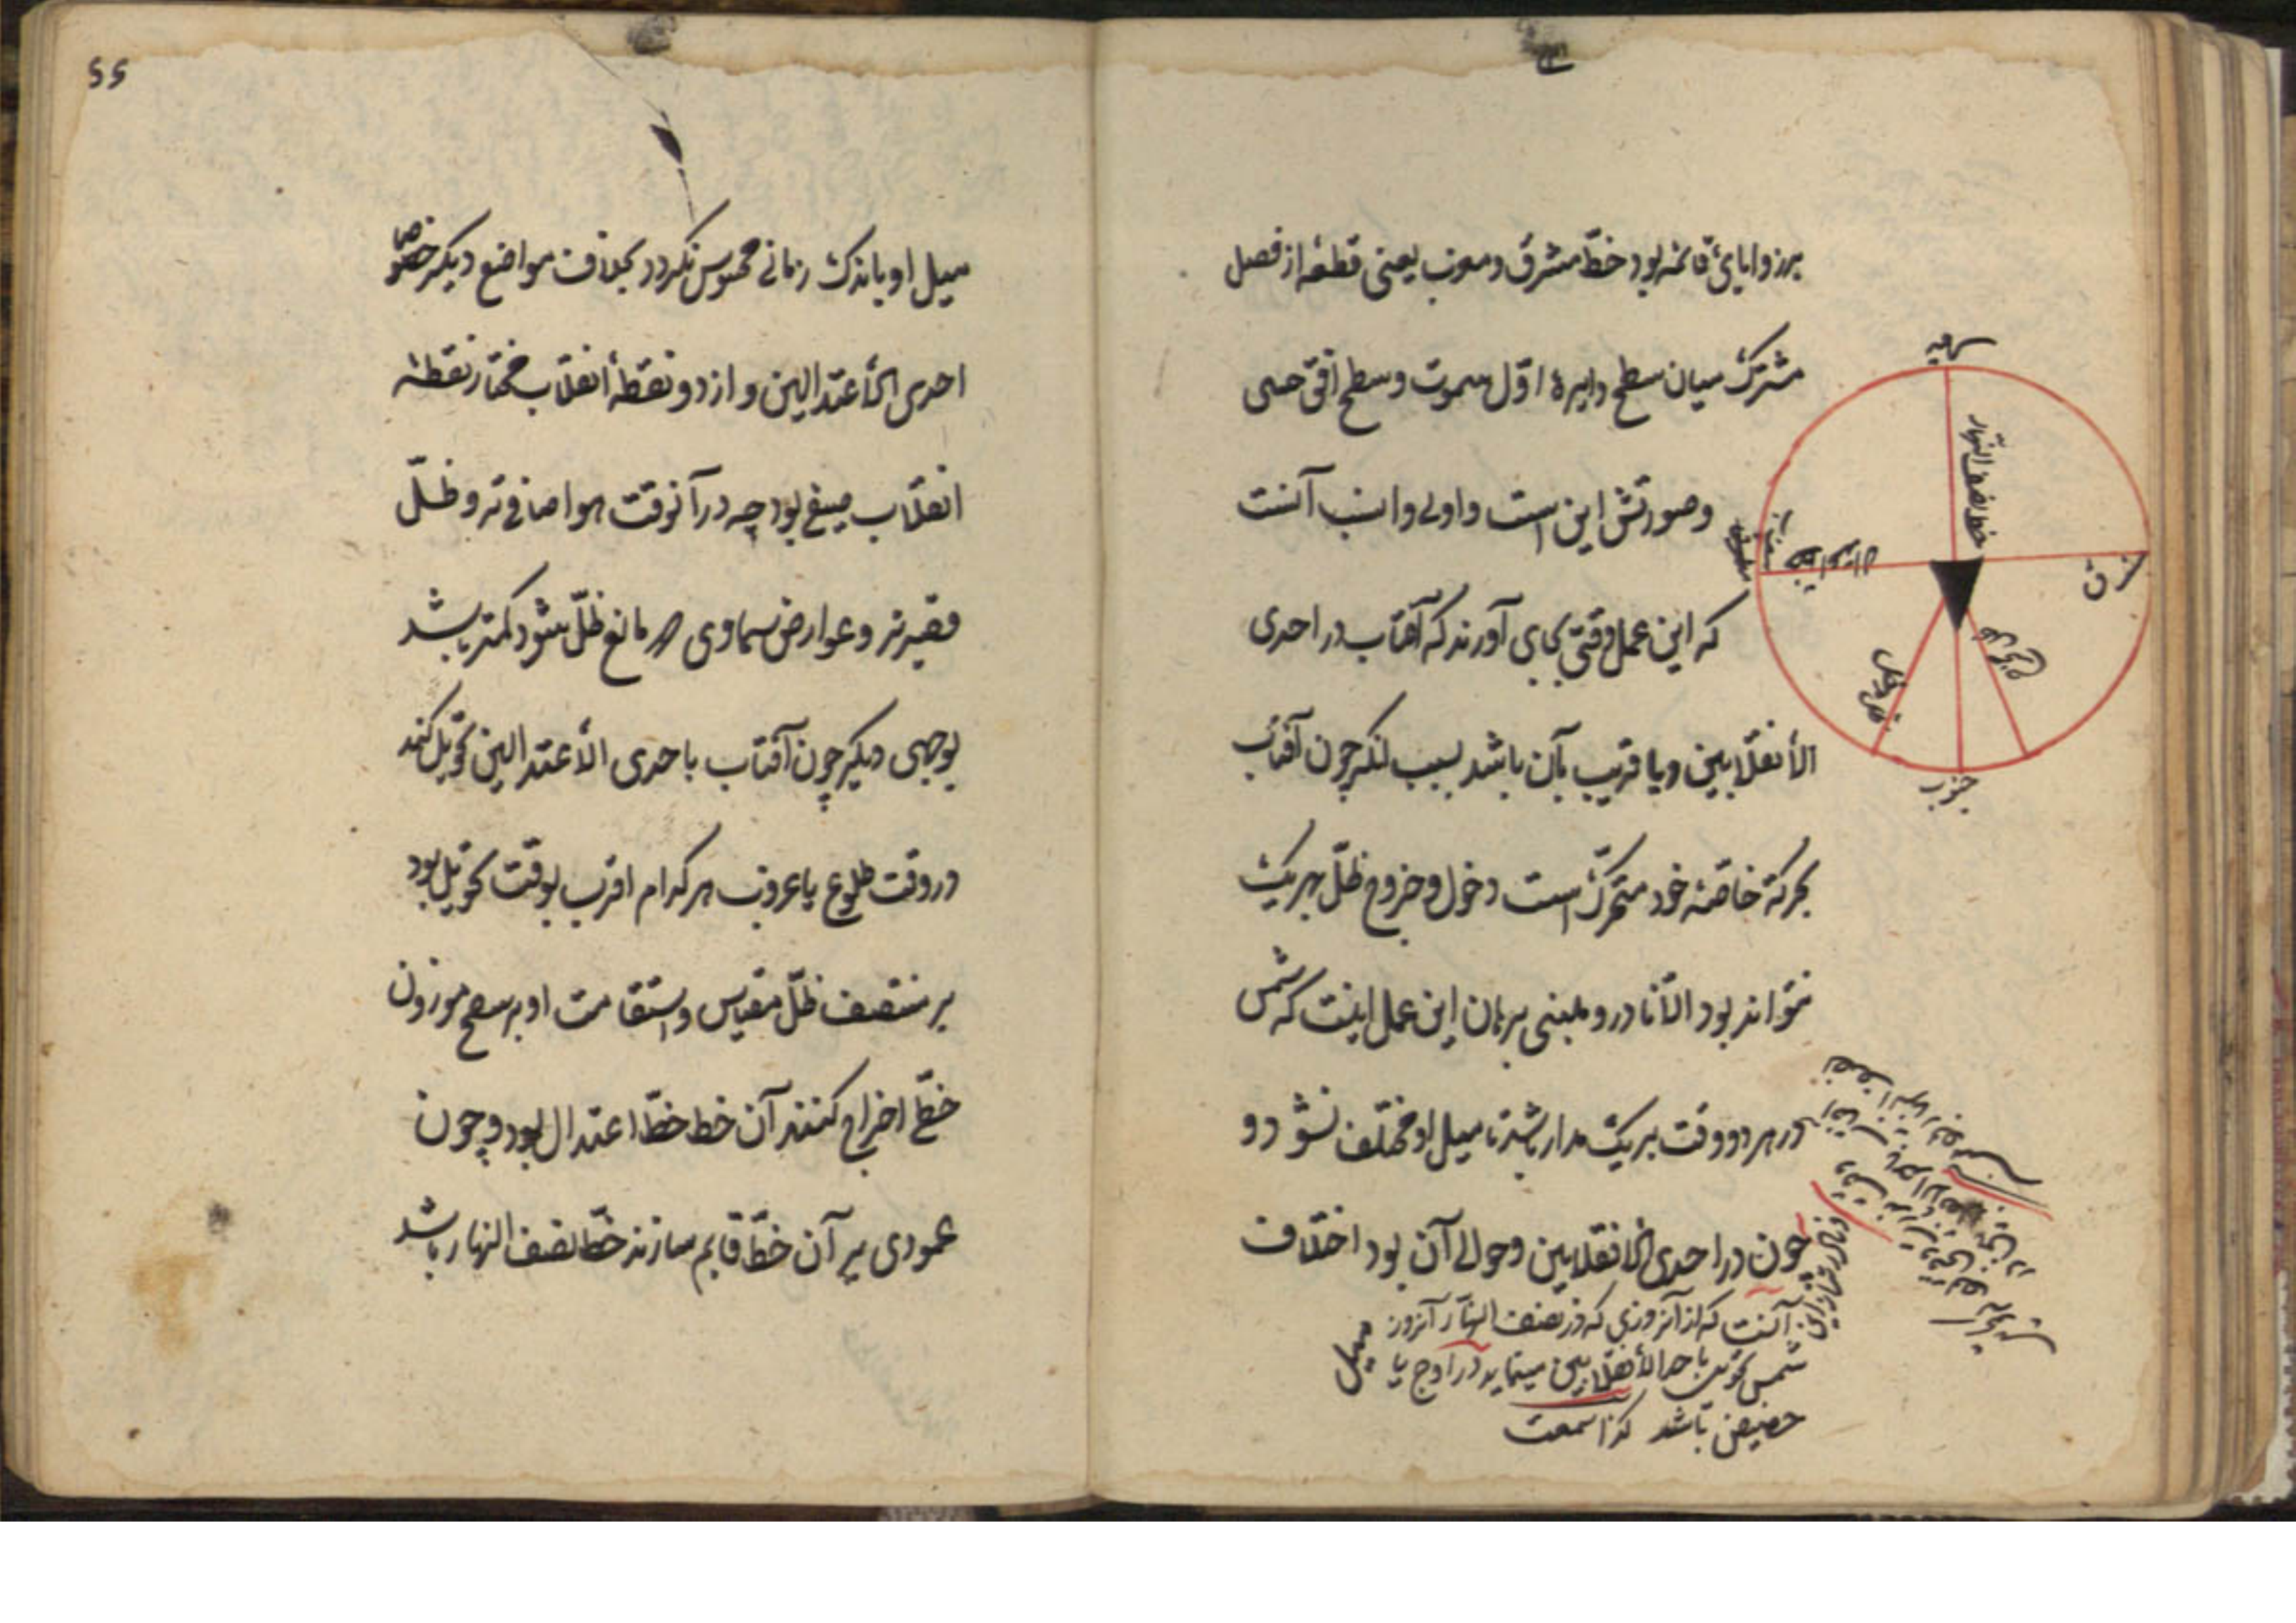 برزوایای قائمه بود خطّ مشرق و مغرب یعنی قطعه از فصل
مشترک میان سطح دایرهٔ اوّل سموت و سطح افق حسی
وصورتش این است و اولی وانسب آنست
که این عمل وقتی بجای آورند که آفتاب در احدی
الأنقلابین ویا قریب بآن باشد بسبب انکه چون آفتاب
بحرکة خاصّهٔ خود متحرّک است دخول وخروج ظلّ بهر یک
نتواند بود الّا نادر و مبنی برهان این عمل اینست که شمس
در هر دو وقت بر یک مدار باشد تا میل او مختلف نشود و
چون در احدی الانقلابین وحوالی آن بود اختلاف
آنست که از آنروزی که در نصف النهار آنروز
شمس تحویل باحد الأنقلابین مینماید در اوج یا
حضیض باشد کذا سمعت
میل
شمال
خط نصف النهار
جنوب
میل او باندک زمانی محسوس نکردد بخلاف مواضع دیکر خصوصا
احدی الأعتدالین و از دو نقطهٔ انقلاب مختار نقطهٔ
انقلاب صیفی بود چه درآنوقت هوا صافی‌تر و ظلّ
قصیرتر و عوارض سماوی که مانع ظلّ شود کمتر باشد
بوجهی دیکر چون آفتاب باحدی الأعتدالین تحویل کند
در وقت طلوع یا غروب هر کدام اقرب بوقت تحویل بود
بر منتصف ظلّ مقیاس واستقامت او بر سطح موزون
خطّی اخراج کنند آن خط خطّ اعتدال بود وچون
عمودی بر آن خطّ قایم سازند خطّ نصف النهار باشد